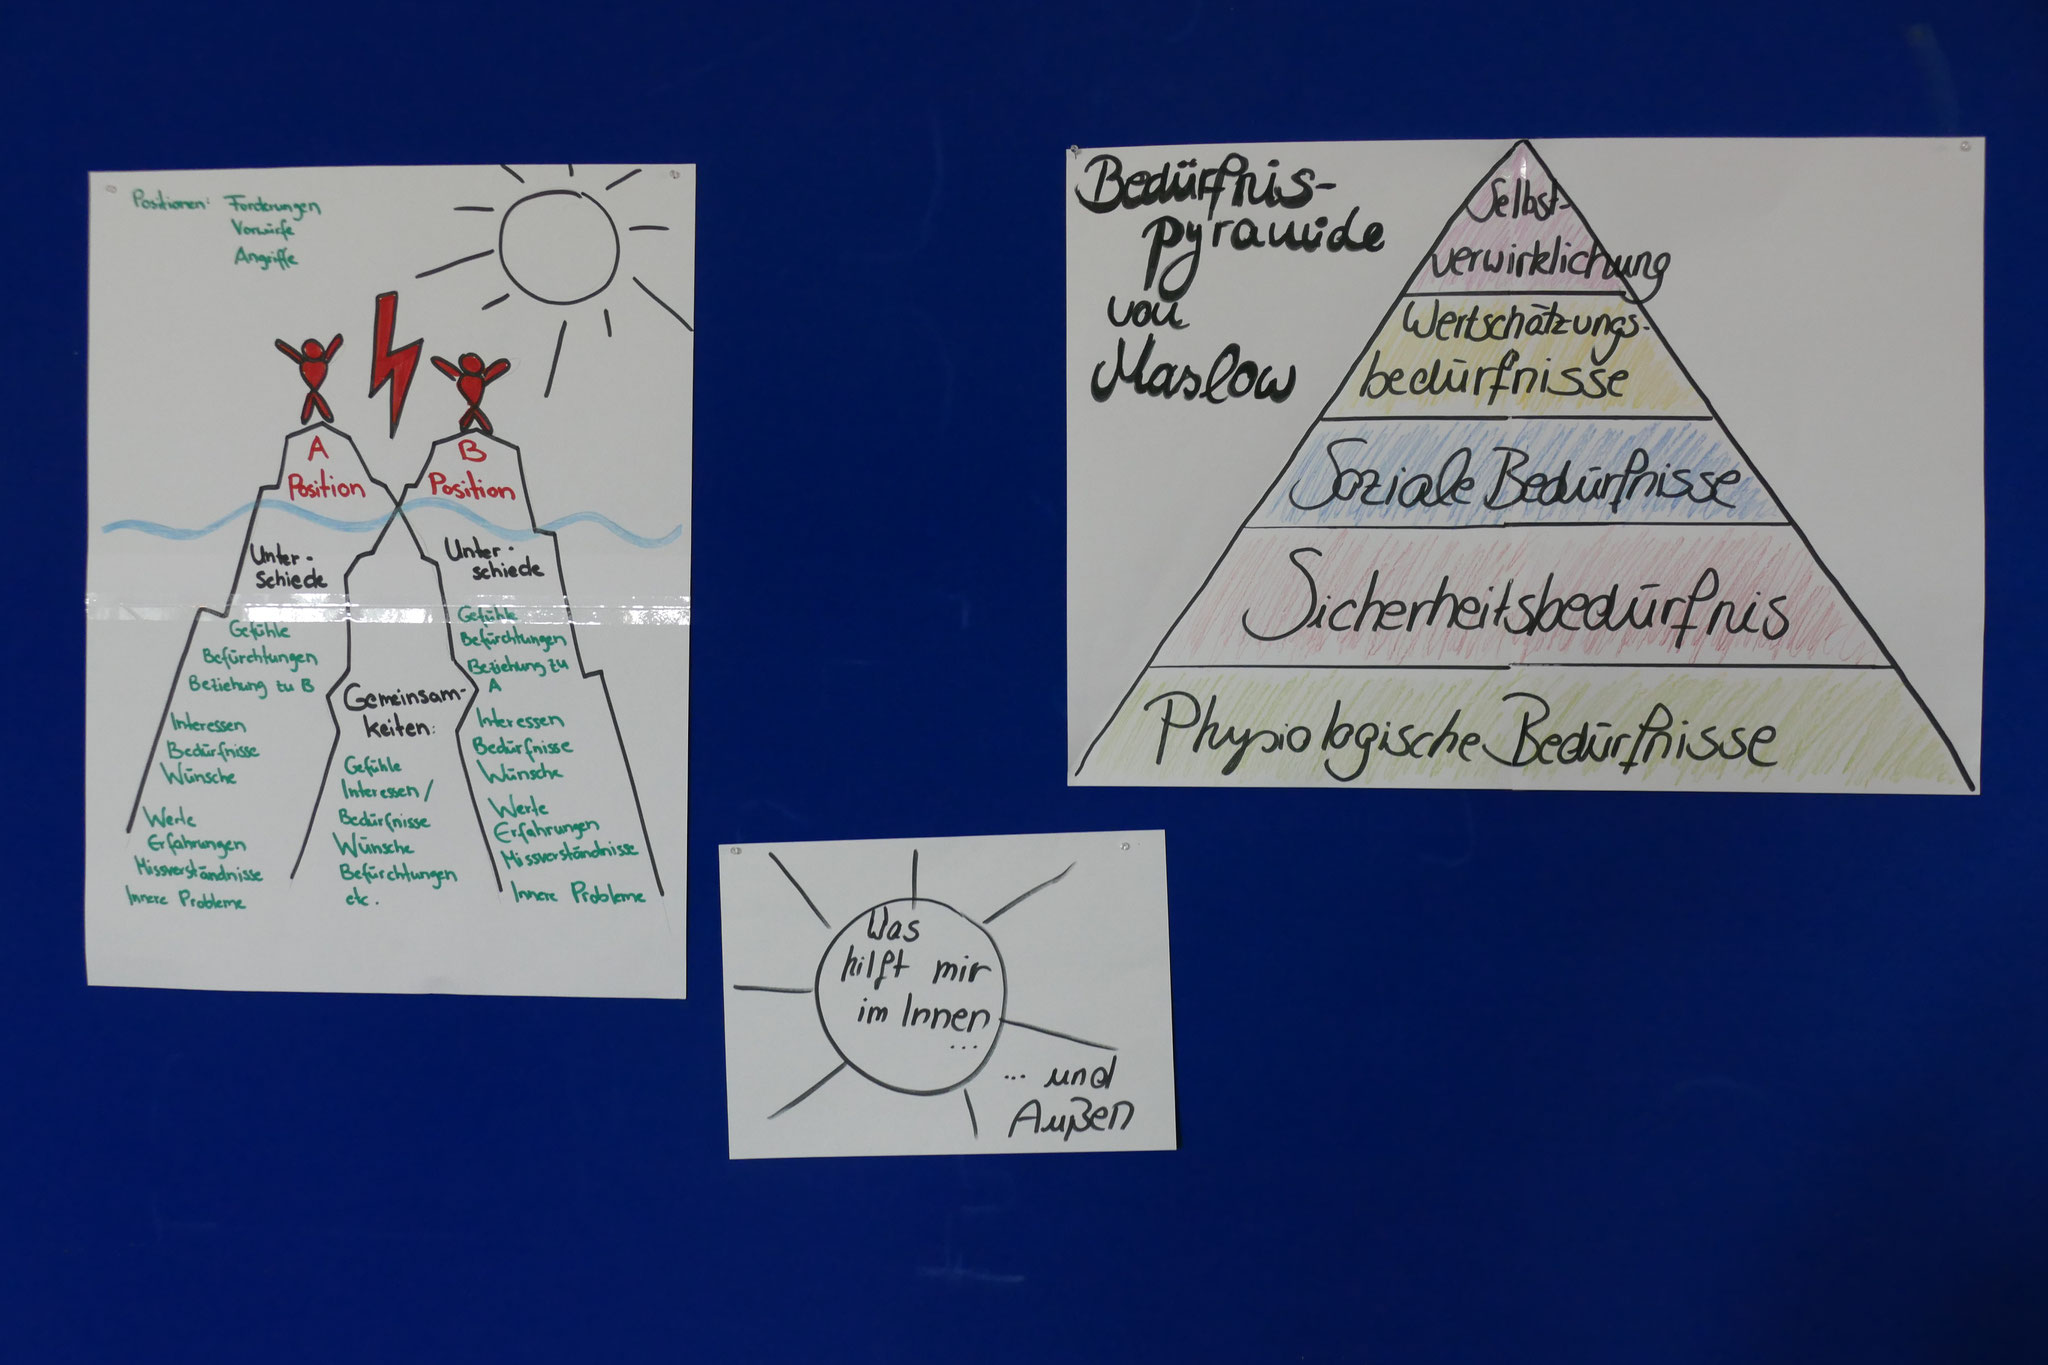 Positionen: Forderungen
Vorwürfe
Angriffe
A
Position
B
Position
Unter-
schiede
Gefühle
Befürchtungen
Beziehung zu B
Interessen
Bedürfnisse
Wünsche
Werte
Erfahrungen
Missverständnisse
Innere Probleme
Gemeinsam-
keiten:
Gefühle
Interessen/
Bedürfnisse
Wünsche
Befürchtungen
etc.
Unter-
schiede
Gefühle
Befürchtungen
Beziehung zu
A
Interessen
Bedürfnisse
Wünsche
Werte
Erfahrungen
Missverständnisse
Innere Probleme
Was
hilft mir
im Innen
...
... und
Außen
Bedürfnis-
pyramide
von
Maslow
Selbst-
verwirklichung
Wertschätzungs-
bedürfnisse
Soziale Bedürfnisse
Sicherheitsbedürfnis
Physiologische Bedürfnisse